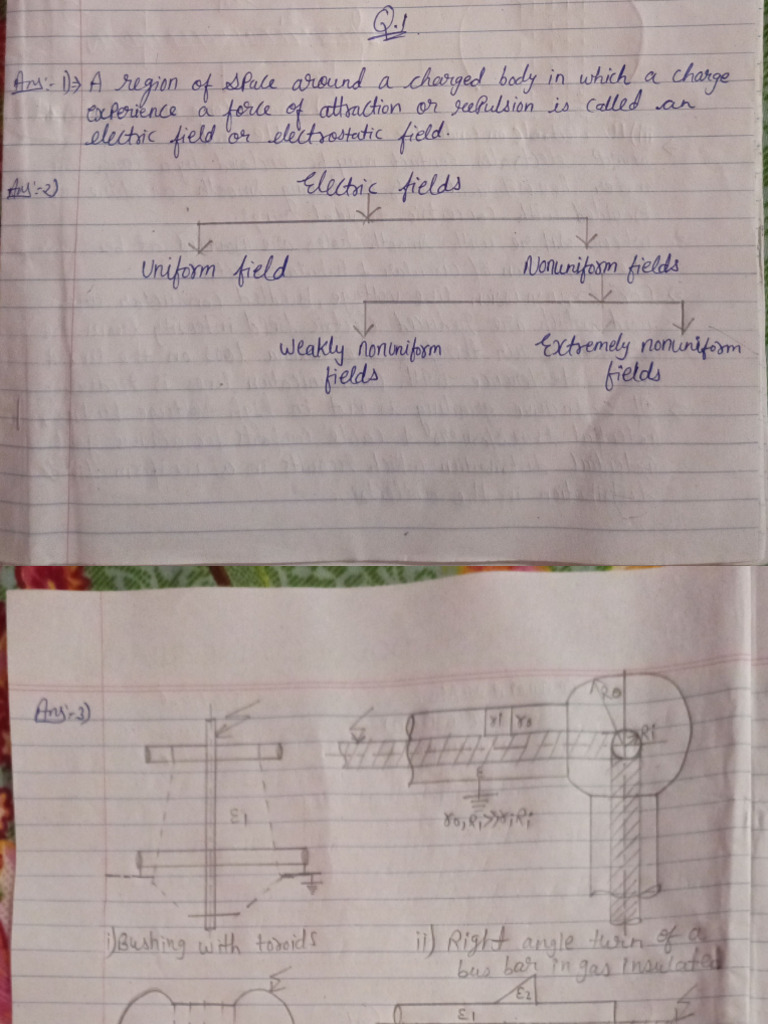 Q.1
Ans:- 1)→ A region of space around a charged body in which a charge
experience a force of attraction or reepulsion is called an
electric field or electrostatic field.
Ans:-2)
Electric fields
Uniform field
Nonuniform fields
Weakly nonuniform
fields
Extremely nonuniform
fields
Ans:-3)
Ro
ri
ro
Ri
ε1
i) Bushing with toroids
ii) Right angle turn of a
bus bar in gas insulated
ε2
ε1